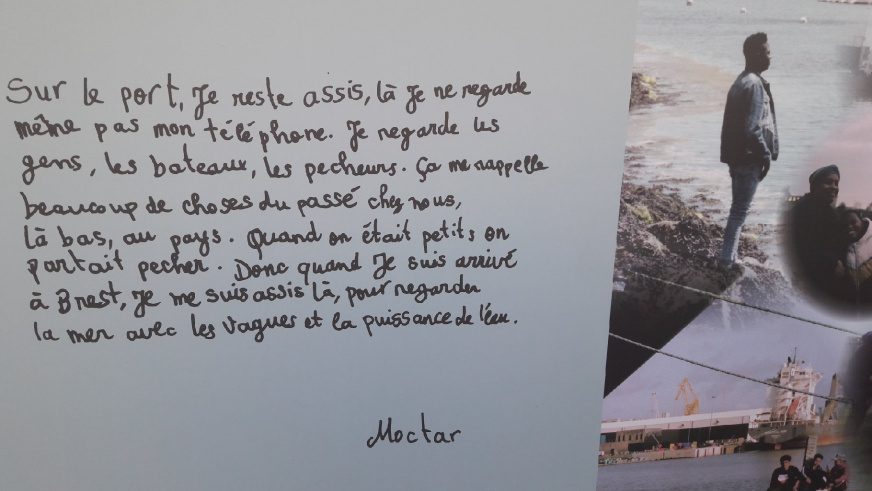 Sur le port, Je reste assis, là Je ne regarde
même pas mon téléphone. Je regarde les
gens, les bateaux, les pecheurs. Ça me rappelle
beaucoup de choses du passé chez nous,
là bas, au pays. Quand on était petits on
partait pecher. Donc quand Je suis arrivé
à Brest, Je me suis assis là, pour regarder
la mer avec les vagues et la puissance de l'eau.
Moctar